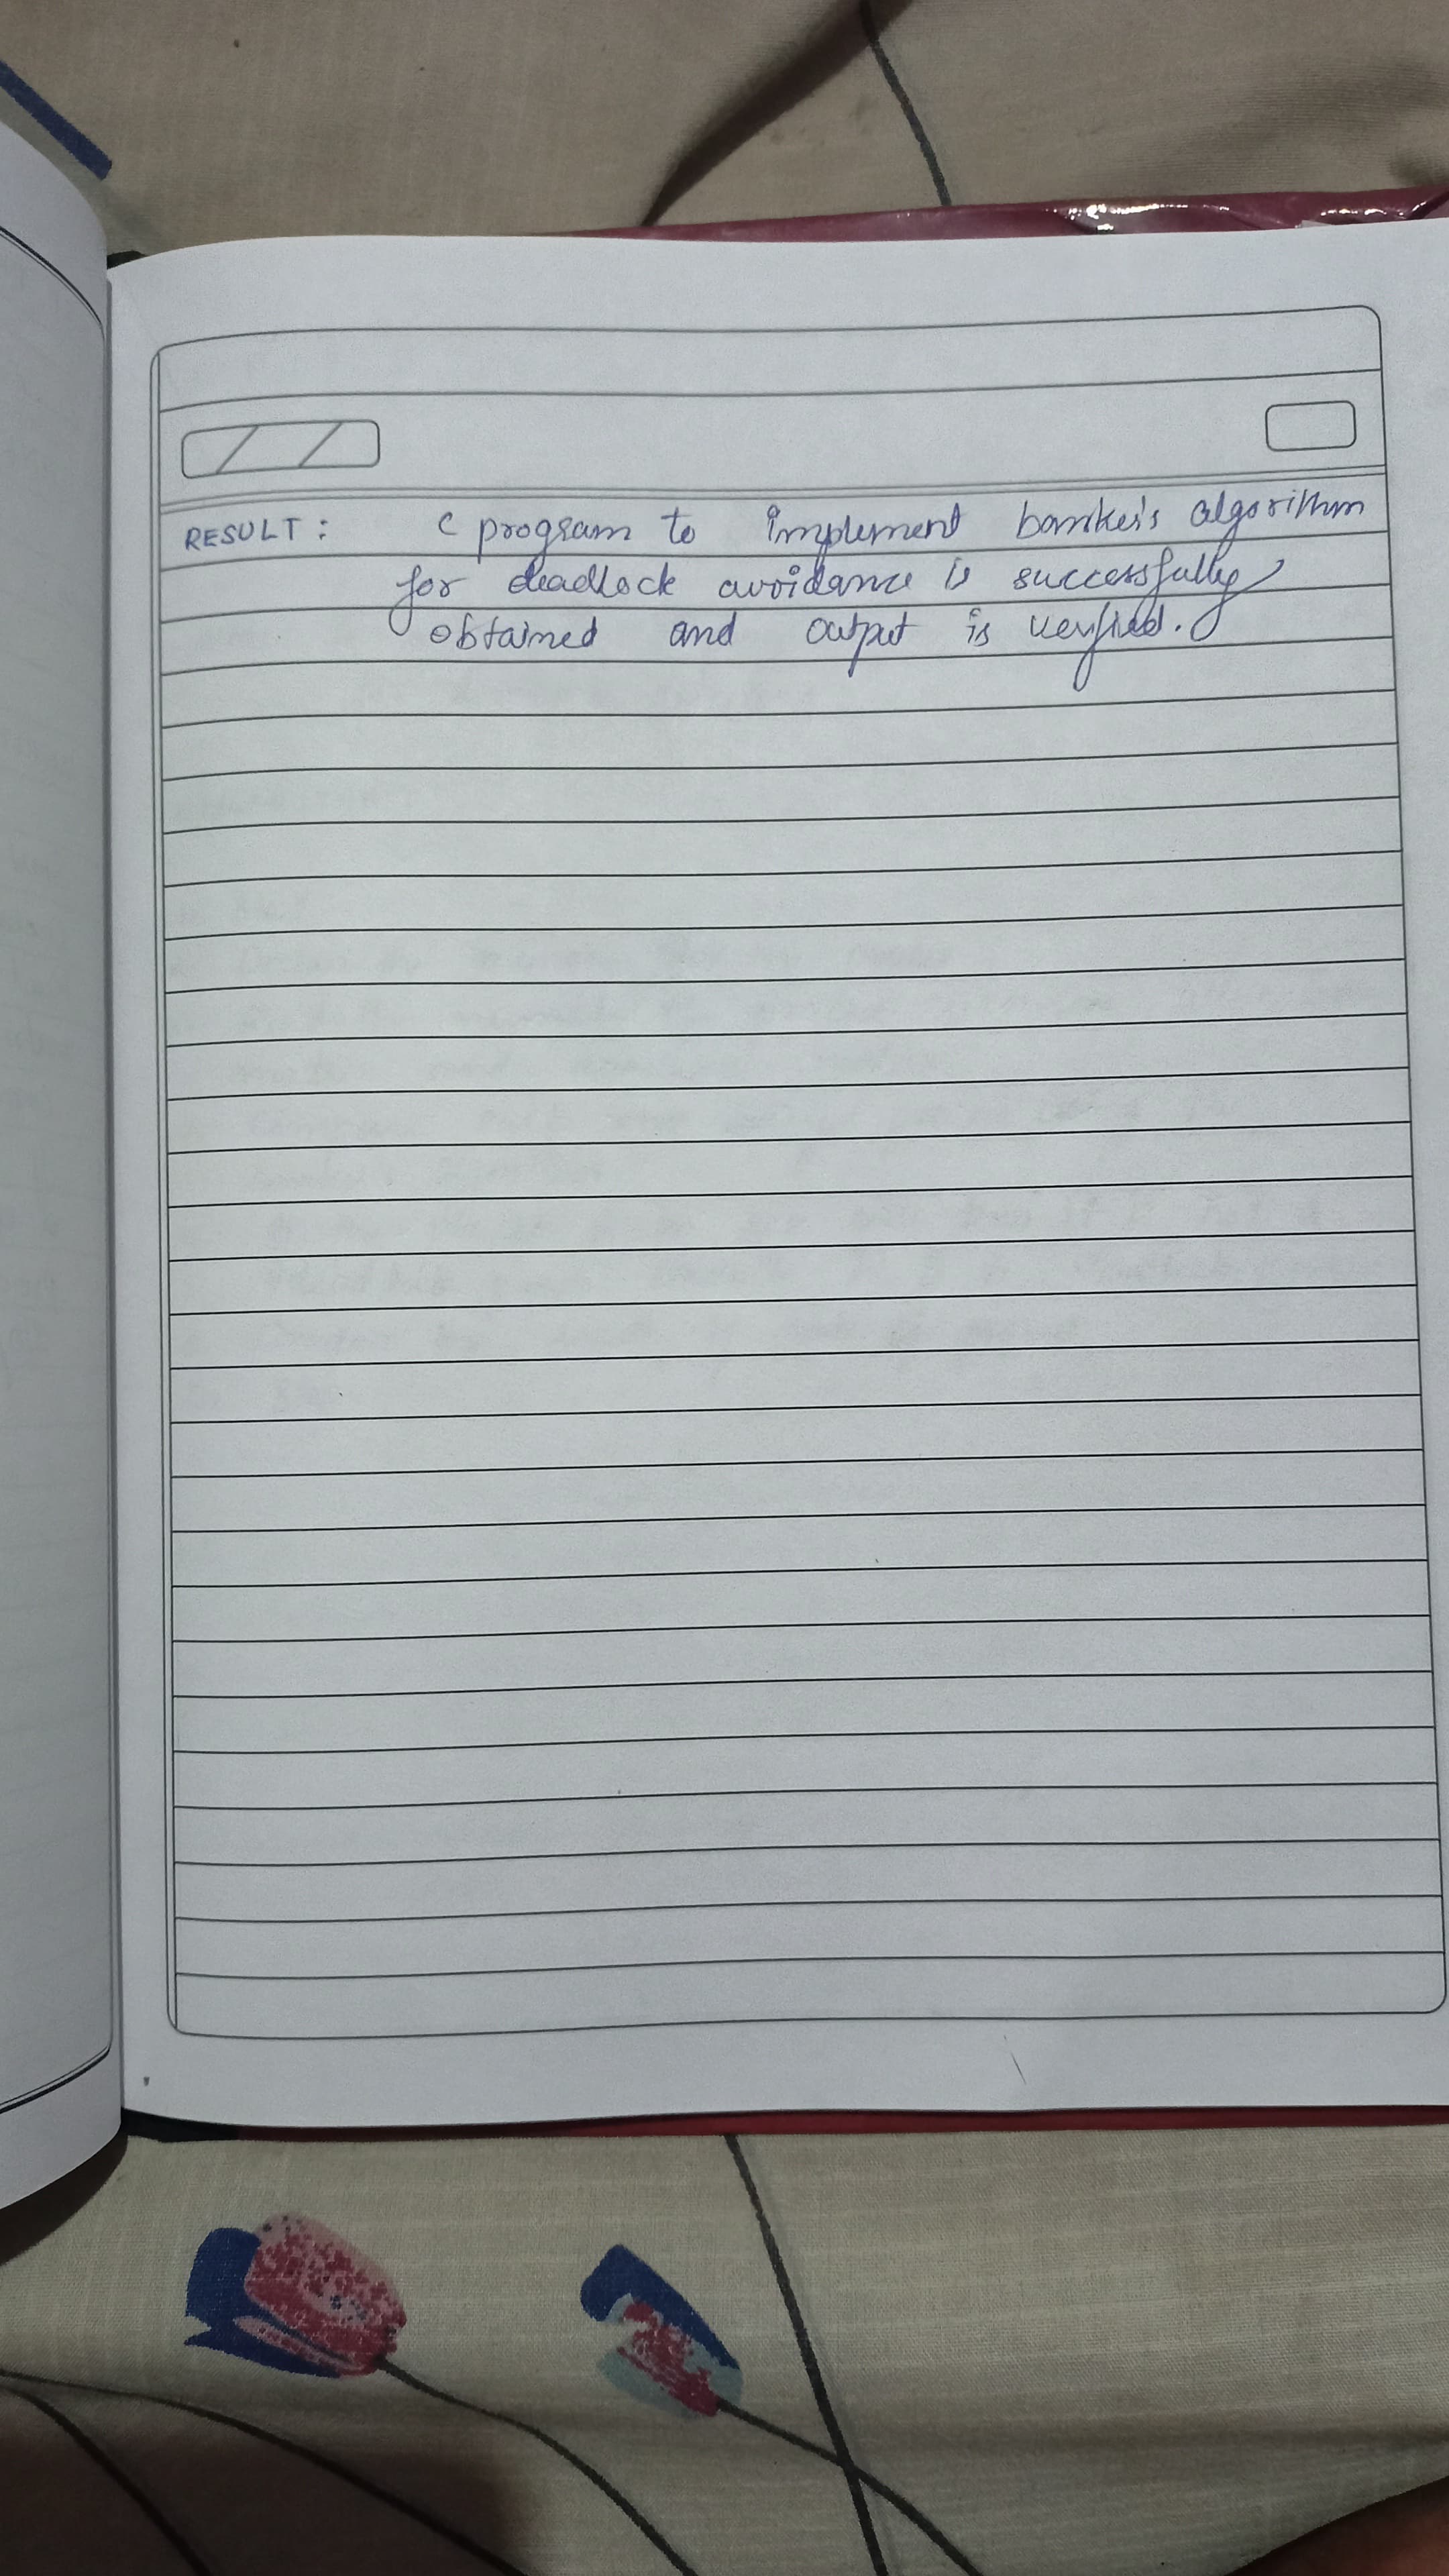 RESULT: C program to implement banker's algorithm
for deadlock avoidance is successfully
obtained and output is verified.